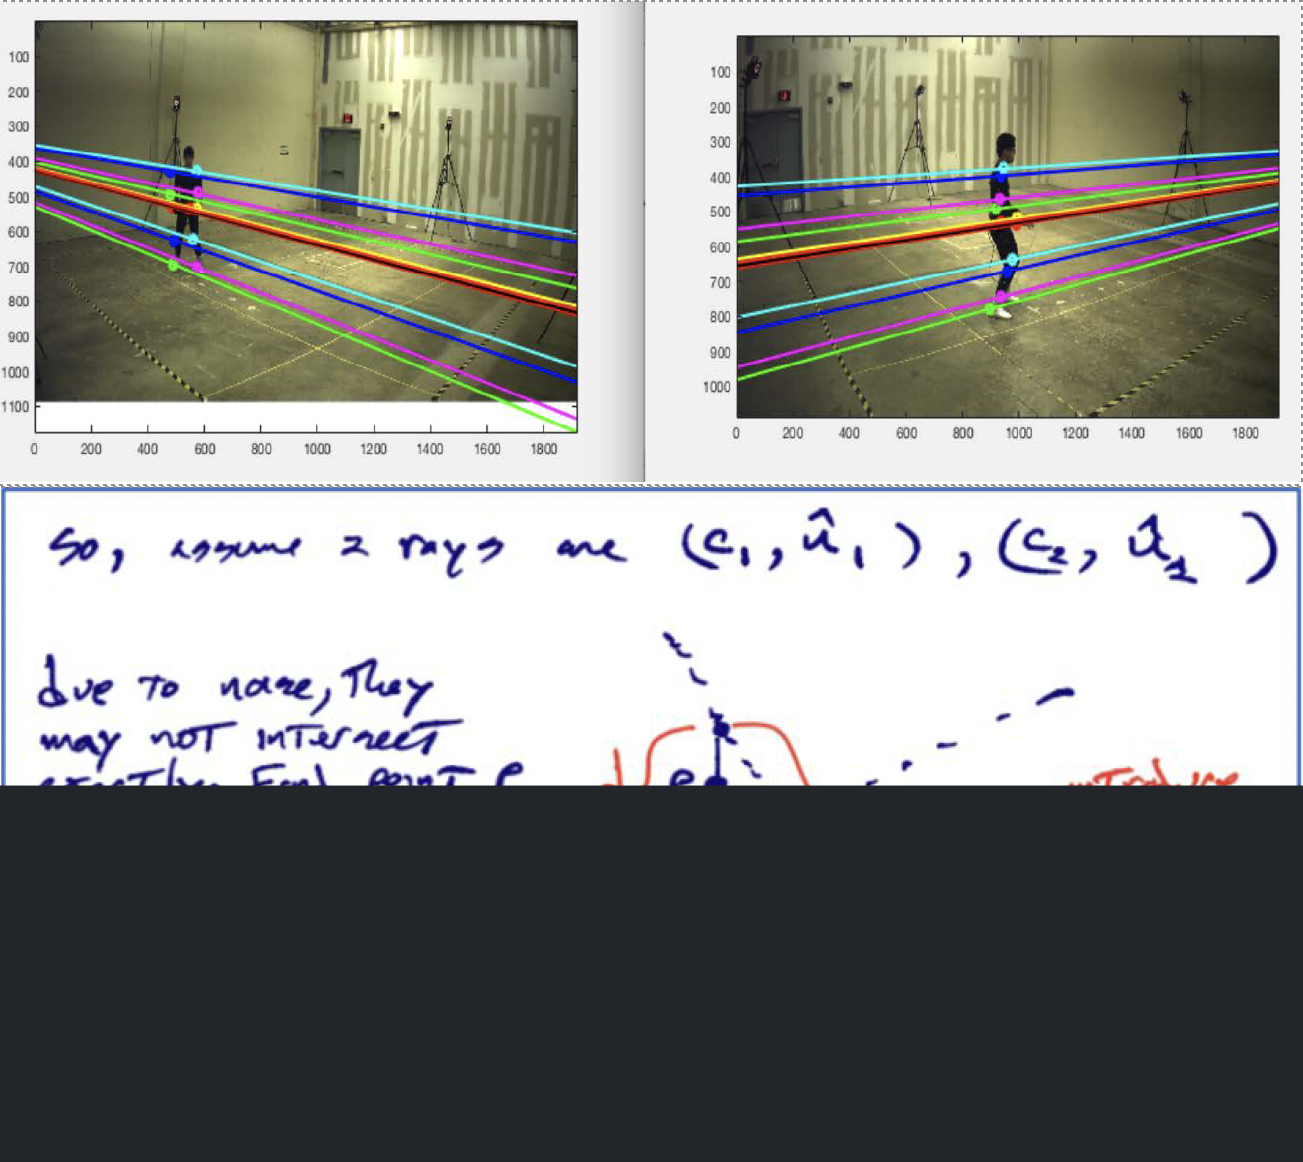 100
200
300
400
500
600
700
800
900
1000
1100
0 200 400 600 800 1000 1200 1400 1600 1800
100
200
300
400
500
600
700
800
900
1000
0 200 400 600 800 1000 1200 1400 1600 1800
So, assume 2 rays are (c₁, û₁), (c₂, û₂)
due to noise, they
may not intersect
exactly. Find point P
d
P
introduce